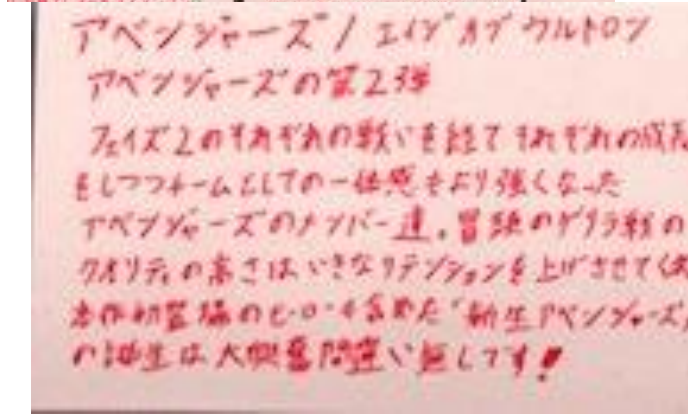 アベンジャーズ/エイジオブウルトロン
アベンジャーズの第2弾
フェイズ2のそれぞれの戦いを経てそれぞれの成長
をしつつチームとしての一体感もより強くなった
アベンジャーズのメンバー達。冒頭のゲリラ戦の
クオリティの高さはいきなりテンションを上げさせてくれ
本作初登場のヒーローも含めた「新生アベンジャーズ」
の誕生は大興奮間違い無しです!